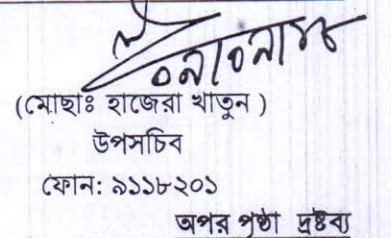 (মোছাঃ হাজেরা খাতুন )
উপসচিব
ফোন: ৯১১৮২০১
অপর পৃষ্ঠা দ্রষ্টব্য